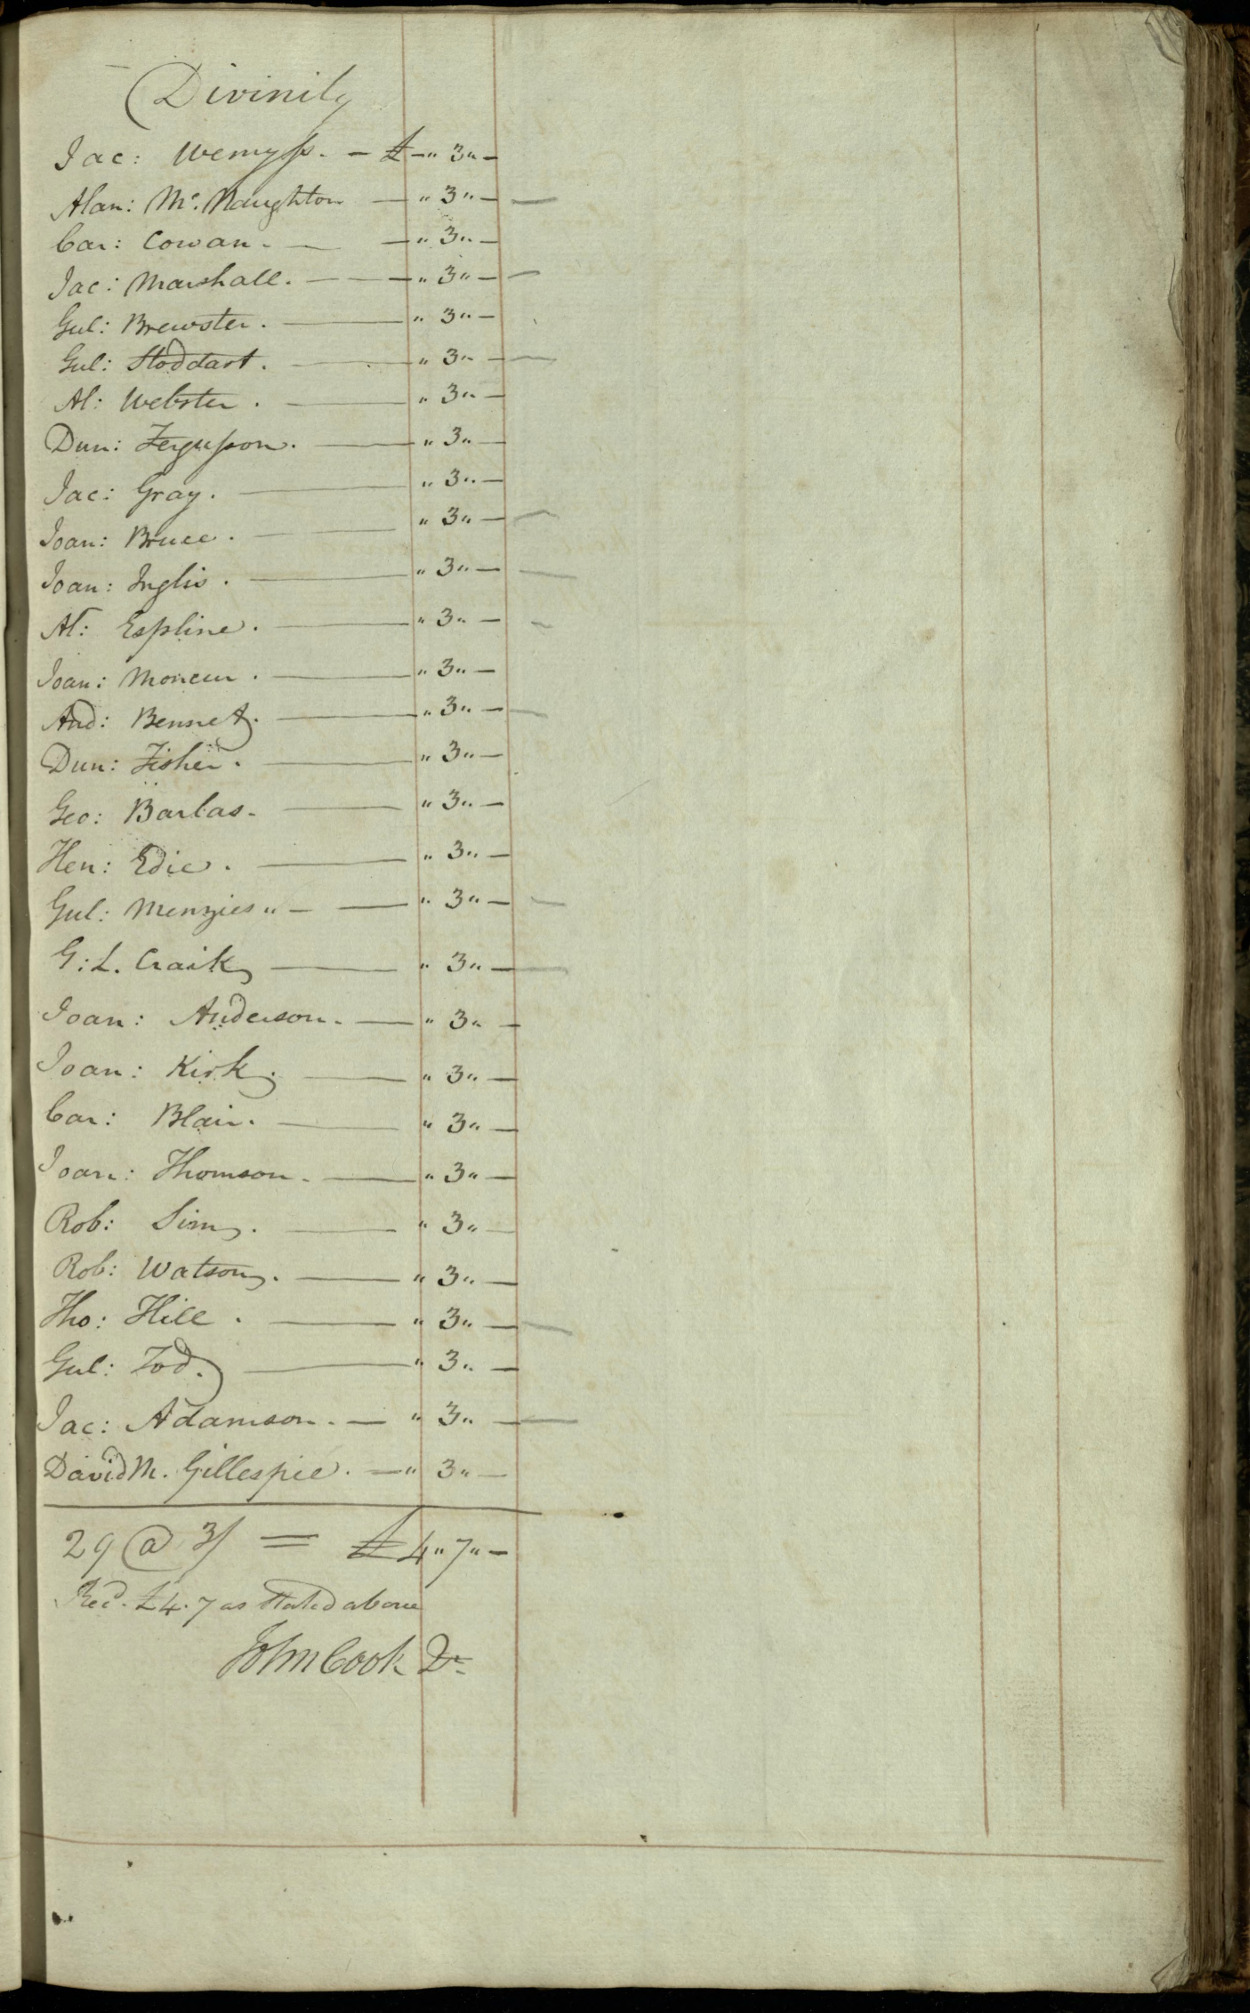 Divinity
Jac: Wemyss. — £ — " 3 " —
Alan: Mc. Naughton — " 3 " — —
Car: Cowan. — — " 3 " —
Jac: Marshall. — — " 3 " — —
Gul: Brewster. — " 3 " —
Gul: Stoddart. — " 3 " — —
Al: Webster. — " 3 " —
Dun: Fergusson. — " 3 " —
Jac: Gray. — " 3 " —
Joan: Bruce. — " 3 " — —
Joan: Inglis. — " 3 " — —
Al: Espline. — " 3 " — —
Joan: Moncur. — " 3 " —
And: Bennet. — " 3 " — —
Dun: Fisher. — " 3 " —
Geo: Barlas. — " 3 " —
Hen: Edie. — " 3 " —
Gul: Menzies " — — " 3 " — —
G: L. Craik — " 3 " — —
Joan: Anderson. — " 3 " —
Joan: Kirk. — " 3 " —
Car: Blair. — " 3 " —
Joan: Thomson. — " 3 " —
Rob: Sim. — " 3 " —
Rob: Watson. — " 3 " —
Tho: Hill. — " 3 " — —
Gul: Tod. — " 3 " —
Jac: Adamson. — " 3 " — —
David M. Gillespie. — " 3 " —
29 @ 3/ = £ 4 " 7 " —
Recd. £4. 7 as stated above
John Cook Dr.